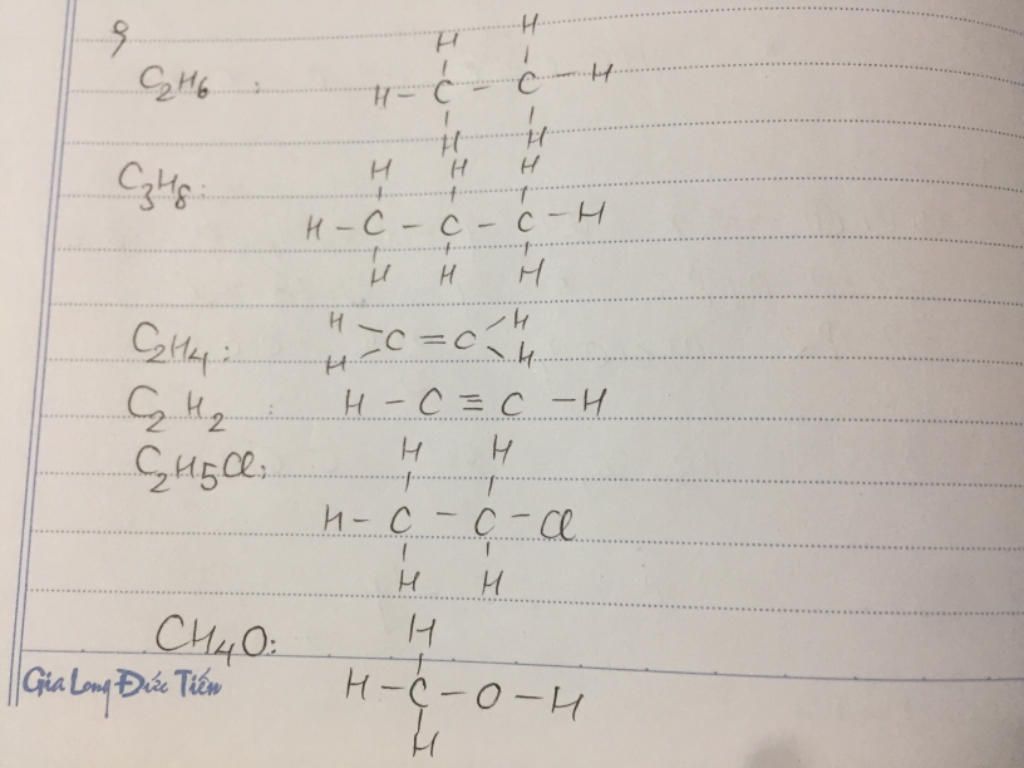 9
C2H6 :
H H
H - C - C - H
H H
C3H8:
H H H
H - C - C - C - H
H H H
C2H4:
H H
C = C
H H
C2H2 : H - C ≡ C - H
C2H5Cl:
H H
H - C - C - Cl
H H
CH4O:
H
Gia Long Đức Tiến
H - C - O - H
H